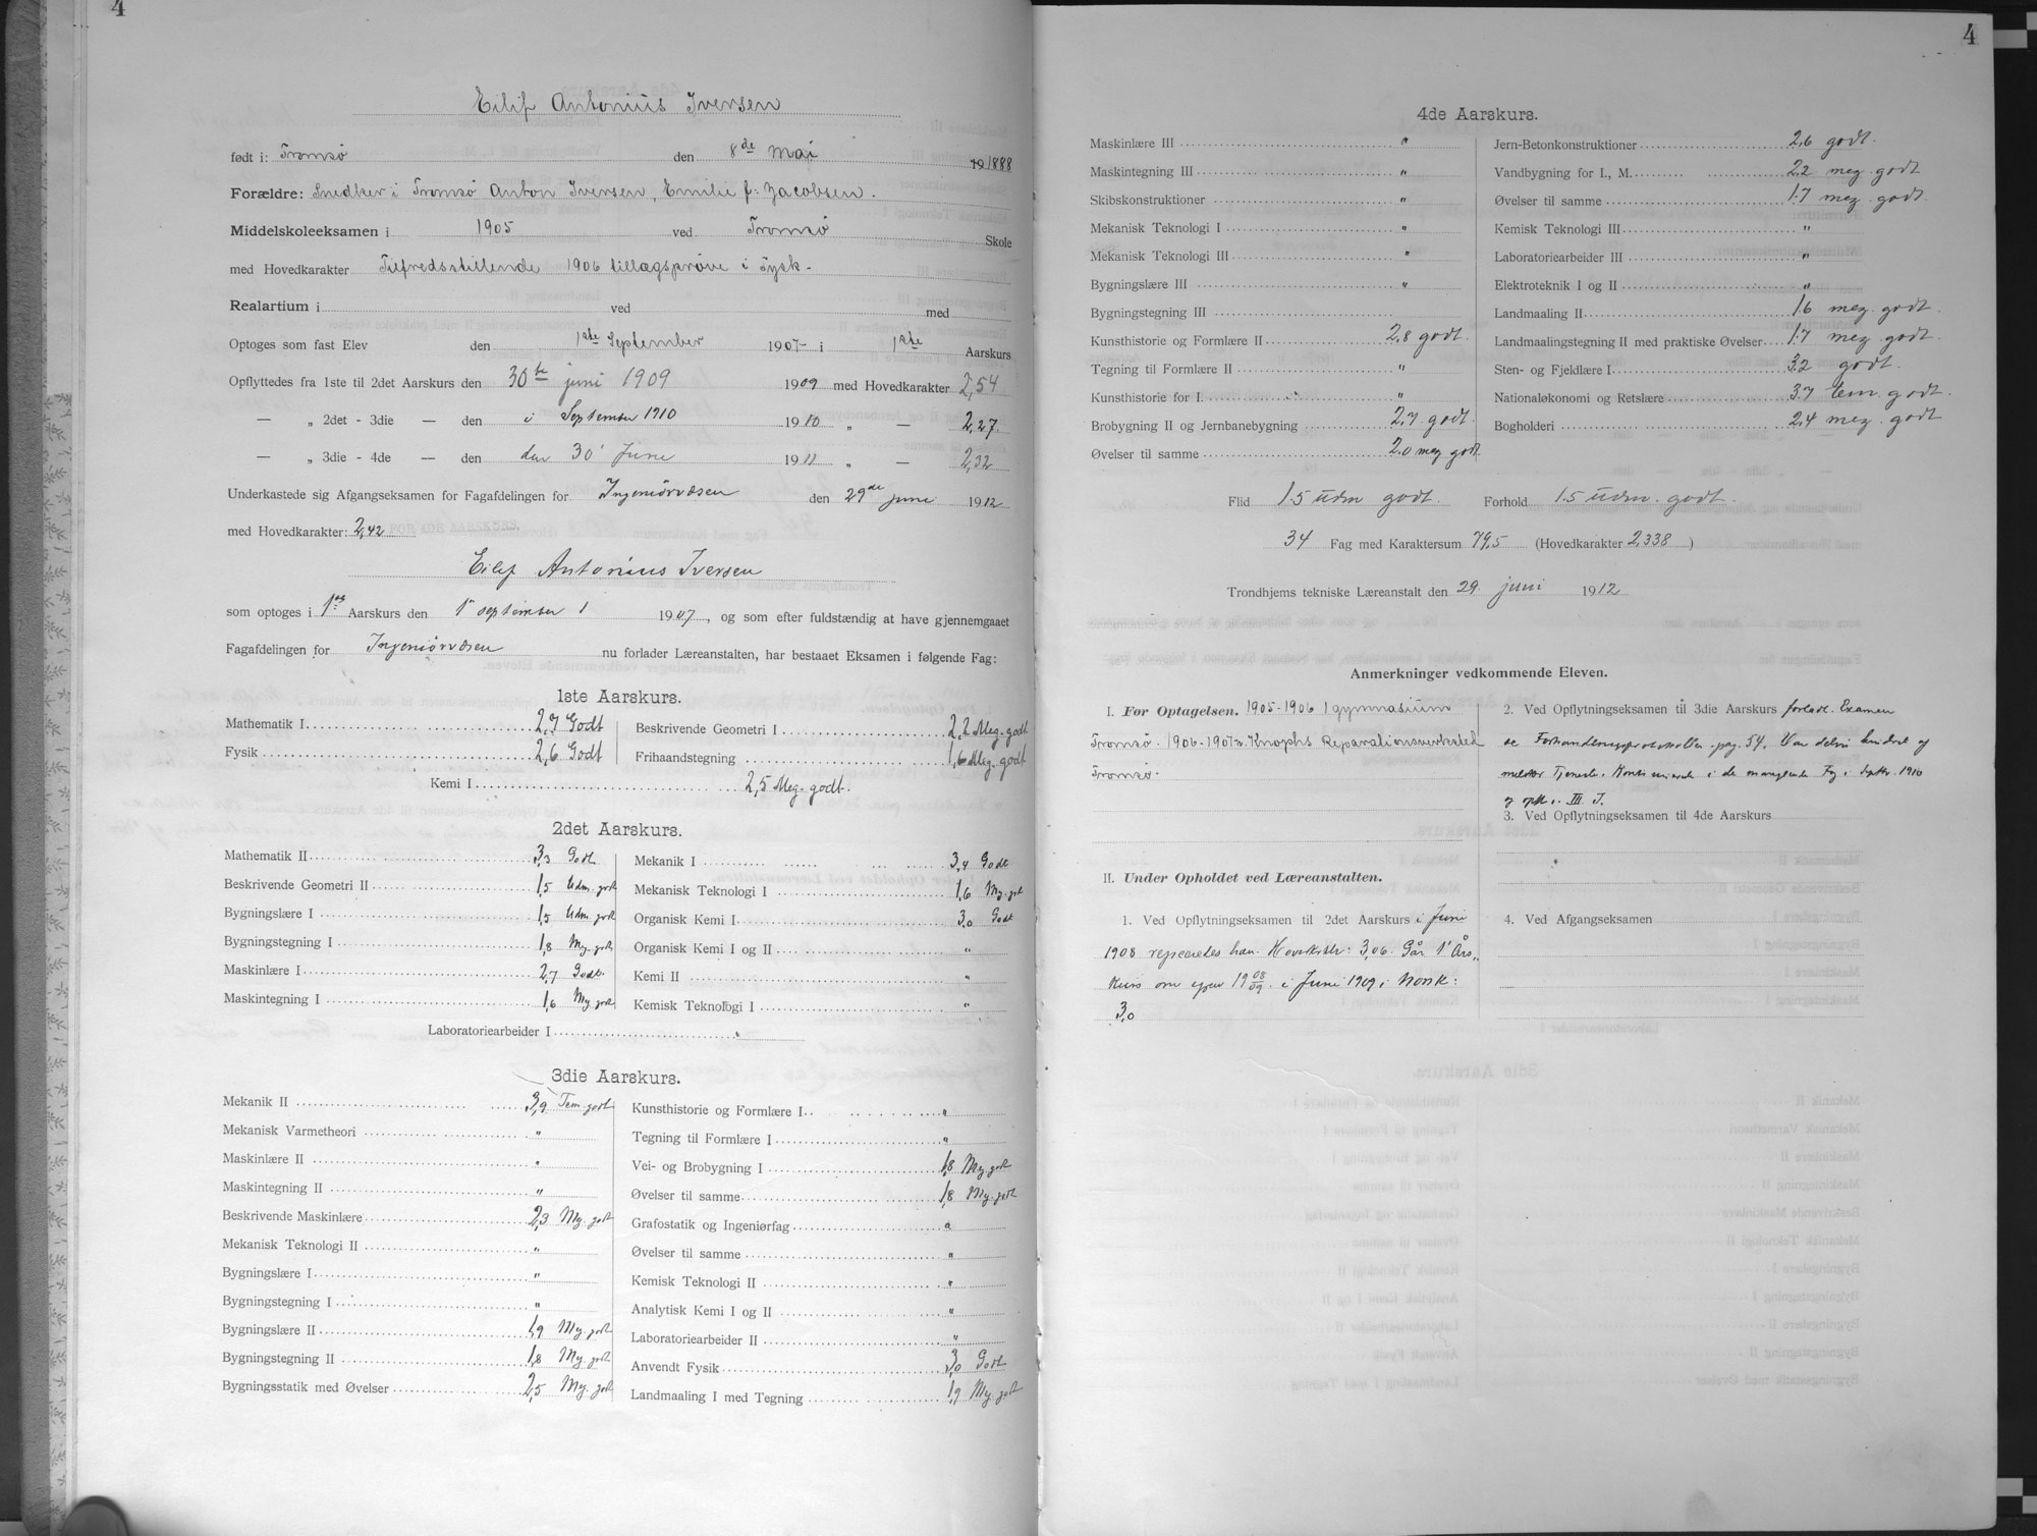 4
Eilif Antonius Iversen
født i: Tromsø den 8de Mai 19 1888
Forældre: Snedker i Tromsø Anton Iversen, Emilie f: Jacobsen.
Middelskoleeksamen i 1905 ved Tromsø Skole
med Hovedkarakter Tilfredsstillende 1906 tillægsprøve i Tysk.
Realartium i ved med
Optoges som fast Elev den 1ste September 1907 i 1ste Aarskurs
Opflyttedes fra 1ste til 2det Aarskurs den 30te juni 1909 1909 med Hovedkarakter 2,54
— „ 2det - 3die — den i September 1910 1910 „ — 2,27.
— „ 3die - 4de — den den 30' June 1911 „ — 2,32
Underkastede sig Afgangseksamen for Fagafdelingen for Ingeniørvæsen den 29de juni 1912
med Hovedkarakter: 2,42 FOR 4DE AARSKURS.
Eilif Antonius Iversen
som optoges i 1ste Aarskurs den 1' september 1 1907, og som efter fuldstændig at have gjennemgaaet
Fagafdelingen for Ingeniørvæsen nu forlader Læreanstalten, har bestaaet Eksamen i følgende Fag:
1ste Aarskurs.
Mathematik I 2,7 Godt
Fysik 2,6 Godt
Beskrivende Geometri I 2,2 Meg. godt
Frihaandstegning 1,6 Meg. godt
Kemi I 2,5 Meg. godt.
2det Aarskurs.
Mathematik II 3,3 Godt
Beskrivende Geometri II 1,5 Udm. godt
Bygningslære I 1,5 Udm. godt
Bygningstegning I 1,8 Mg. godt
Maskinlære I 2,7 Godt.
Maskintegning I 1,6 Mg. godt
Mekanik I 3,4 Godt
Mekanisk Teknologi I 1,6 Mg. godt
Organisk Kemi I 3,0 Godt
Organisk Kemi I og II „
Kemi II „
Kemisk Teknologi I „
Laboratoriearbeider I „
3die Aarskurs.
Mekanik II 3,9 Tem. godt
Mekanisk Varmetheori „
Maskinlære II „
Maskintegning II „
Beskrivende Maskinlære 2,3 Mg. godt
Mekanisk Teknologi II „
Bygningslære I „
Bygningstegning I „
Bygningslære II 1,9 Mg. godt
Bygningstegning II 1,8 Mg. godt
Bygningsstatik med Øvelser 2,5 Mg. godt
Kunsthistorie og Formlære I „
Tegning til Formlære I „
Vei- og Brobygning I 1,8 Mg. godt
Øvelser til samme 1,8 Mg. godt
Grafostatik og Ingeniørfag „
Øvelser til samme „
Kemisk Teknologi II „
Analytisk Kemi I og II „
Laboratoriearbeider II „
Anvendt Fysik 3,0 Godt
Landmaaling I med Tegning 1,9 Mg. godt
4
4de Aarskurs.
Maskinlære III „
Maskintegning III „
Skibskonstruktioner „
Mekanisk Teknologi I „
Mekanisk Teknologi III „
Bygningslære III „
Bygningstegning III
Kunsthistorie og Formlære II 2,8 godt.
Tegning til Formlære II „
Kunsthistorie for I. „
Brobygning II og Jernbanebygning 2,7 godt.
Øvelser til samme 2.0 meg godt
Jern-Betonkonstruktioner 2,6 godt.
Vandbygning for I., M. 2.2 meg. godt
Øvelser til samme 1.7 meg. godt.
Kemisk Teknologi III „
Laboratoriearbeider III „
Elektroteknik I og II „
Landmaaling II 1.6 meg. godt.
Landmaalingstegning II med praktiske Øvelser 1.7 meg. godt.
Sten- og Fjeldlære I. 3.2 godt.
Nationaløkonomi og Retslære 3.7 tem. godt.
Bogholderi 2.4 meg. godt
Flid 1.5 udm godt. Forhold 1.5 udm. godt.
34 Fag med Karaktersum 79,5 (Hovedkarakter 2,338 )
Trondhjems tekniske Læreanstalt den 29. juni 1912
Anmerkninger vedkommende Eleven.
I. Før Optagelsen. 1905-1906 1 gymnasium
Tromsø. 1906-1907 Knophs Reparationsverksted
Tromsø.
II. Under Opholdet ved Læreanstalten.
1. Ved Opflytningseksamen til 2det Aarskurs i Juni
1908 rejiceredes han. Hovedkar: 3,06. Går 1' Års
kurs om igjen 1908/09. i Juni 1909 i Norsk:
3,0
2. Ved Opflytningseksamen til 3die Aarskurs forlod. Examen
se Forhandlingsprotokollen pag. 54. Var delvis hindret af
militær Tjeneste. Kontinuerede i de manglende Fag i Septbr. 1910
og opfl. i III. I.
3. Ved Opflytningseksamen til 4de Aarskurs
4. Ved Afgangseksamen